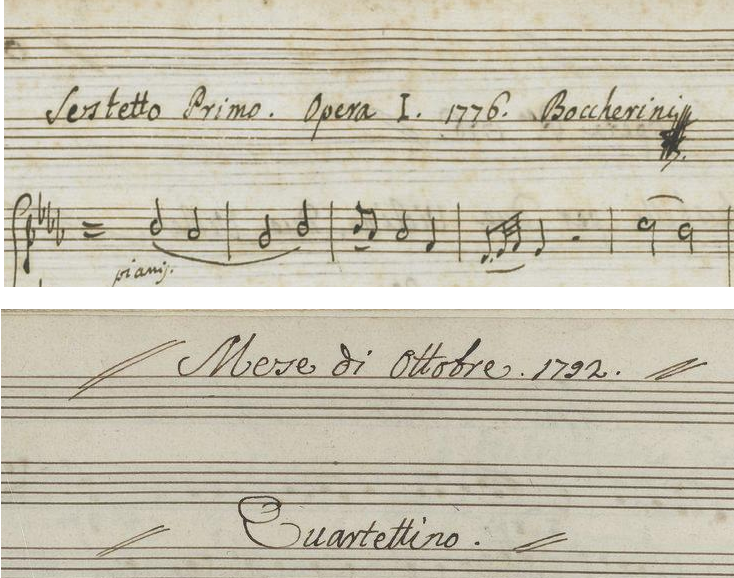 Sestetto Primo. Opera I. 1776. Boccherini
pianis.
Mese di Ottobre. 1792.
Quartettino.